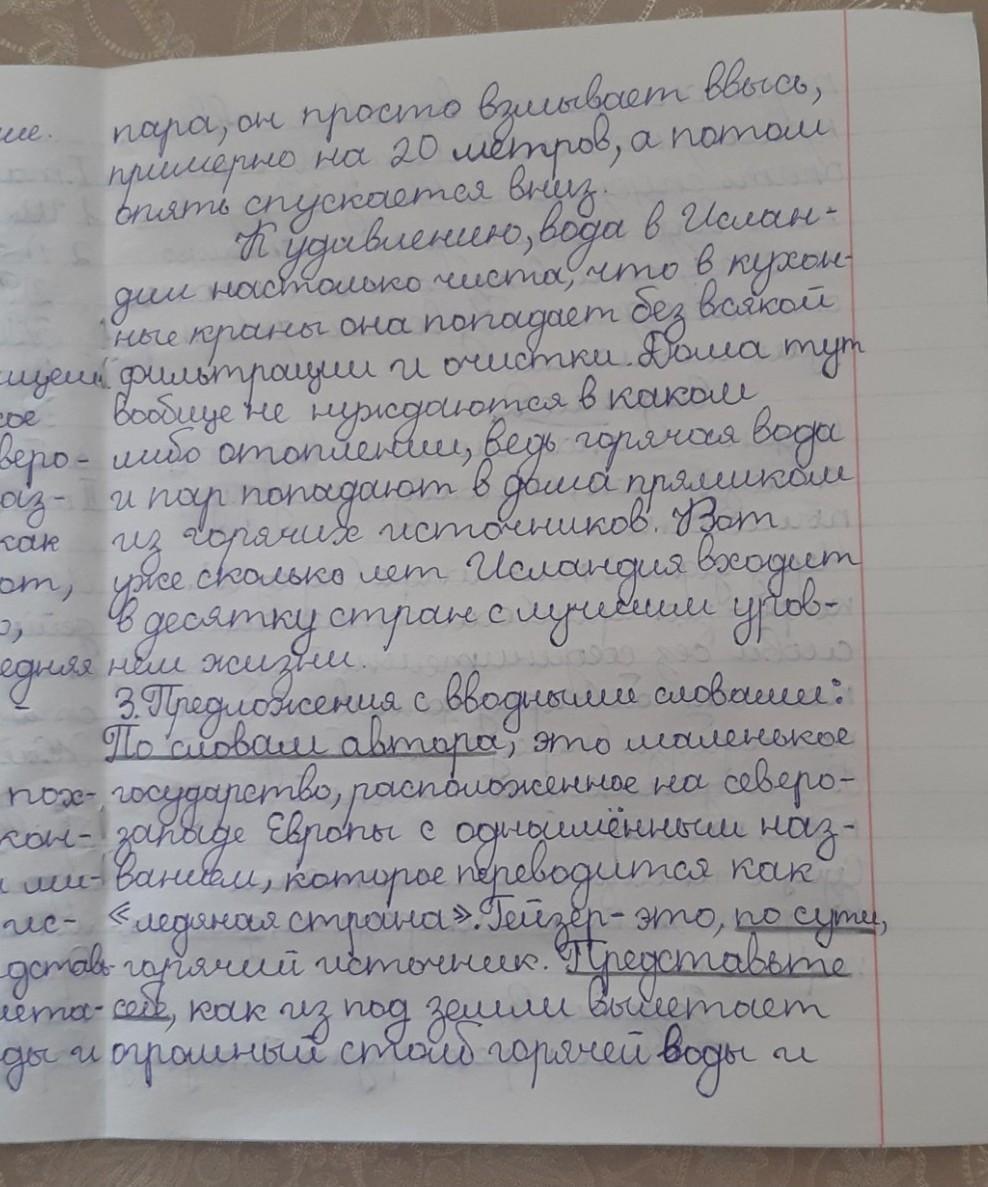 ше. пара, он просто взмывает ввысь,
примерно на 20 метров, а потом
опять спускается вниз.
К удивлению, вода в Ислан-
дии настолько чиста, что в кухон-
ные краны она попадает без всякой
ищем фильтрации и очистки. Дома тут
сое вообще не нуждаются в каком
веро- либо отоплении, ведь горячая вода
аз- и пар попадают в дома прямиком
как из горячих источников. Вот
от, уже сколько лет Исландия входит
о, в десятку стран с лучшим уров-
едняя нем жизни.
- 3. Предложения с вводными словами:
По словам автора, это маленькое
пох- государство, расположенное на северо-
кон- западе Европы с одноимённым наз-
и ми- ванием, которое переводится как
ис- «ледяная страна». Гейзер - это, по сути,
дставь горячий источник. Представьте
лета- себе, как из под земли вылетает
ды и огромный столб горячей воды и